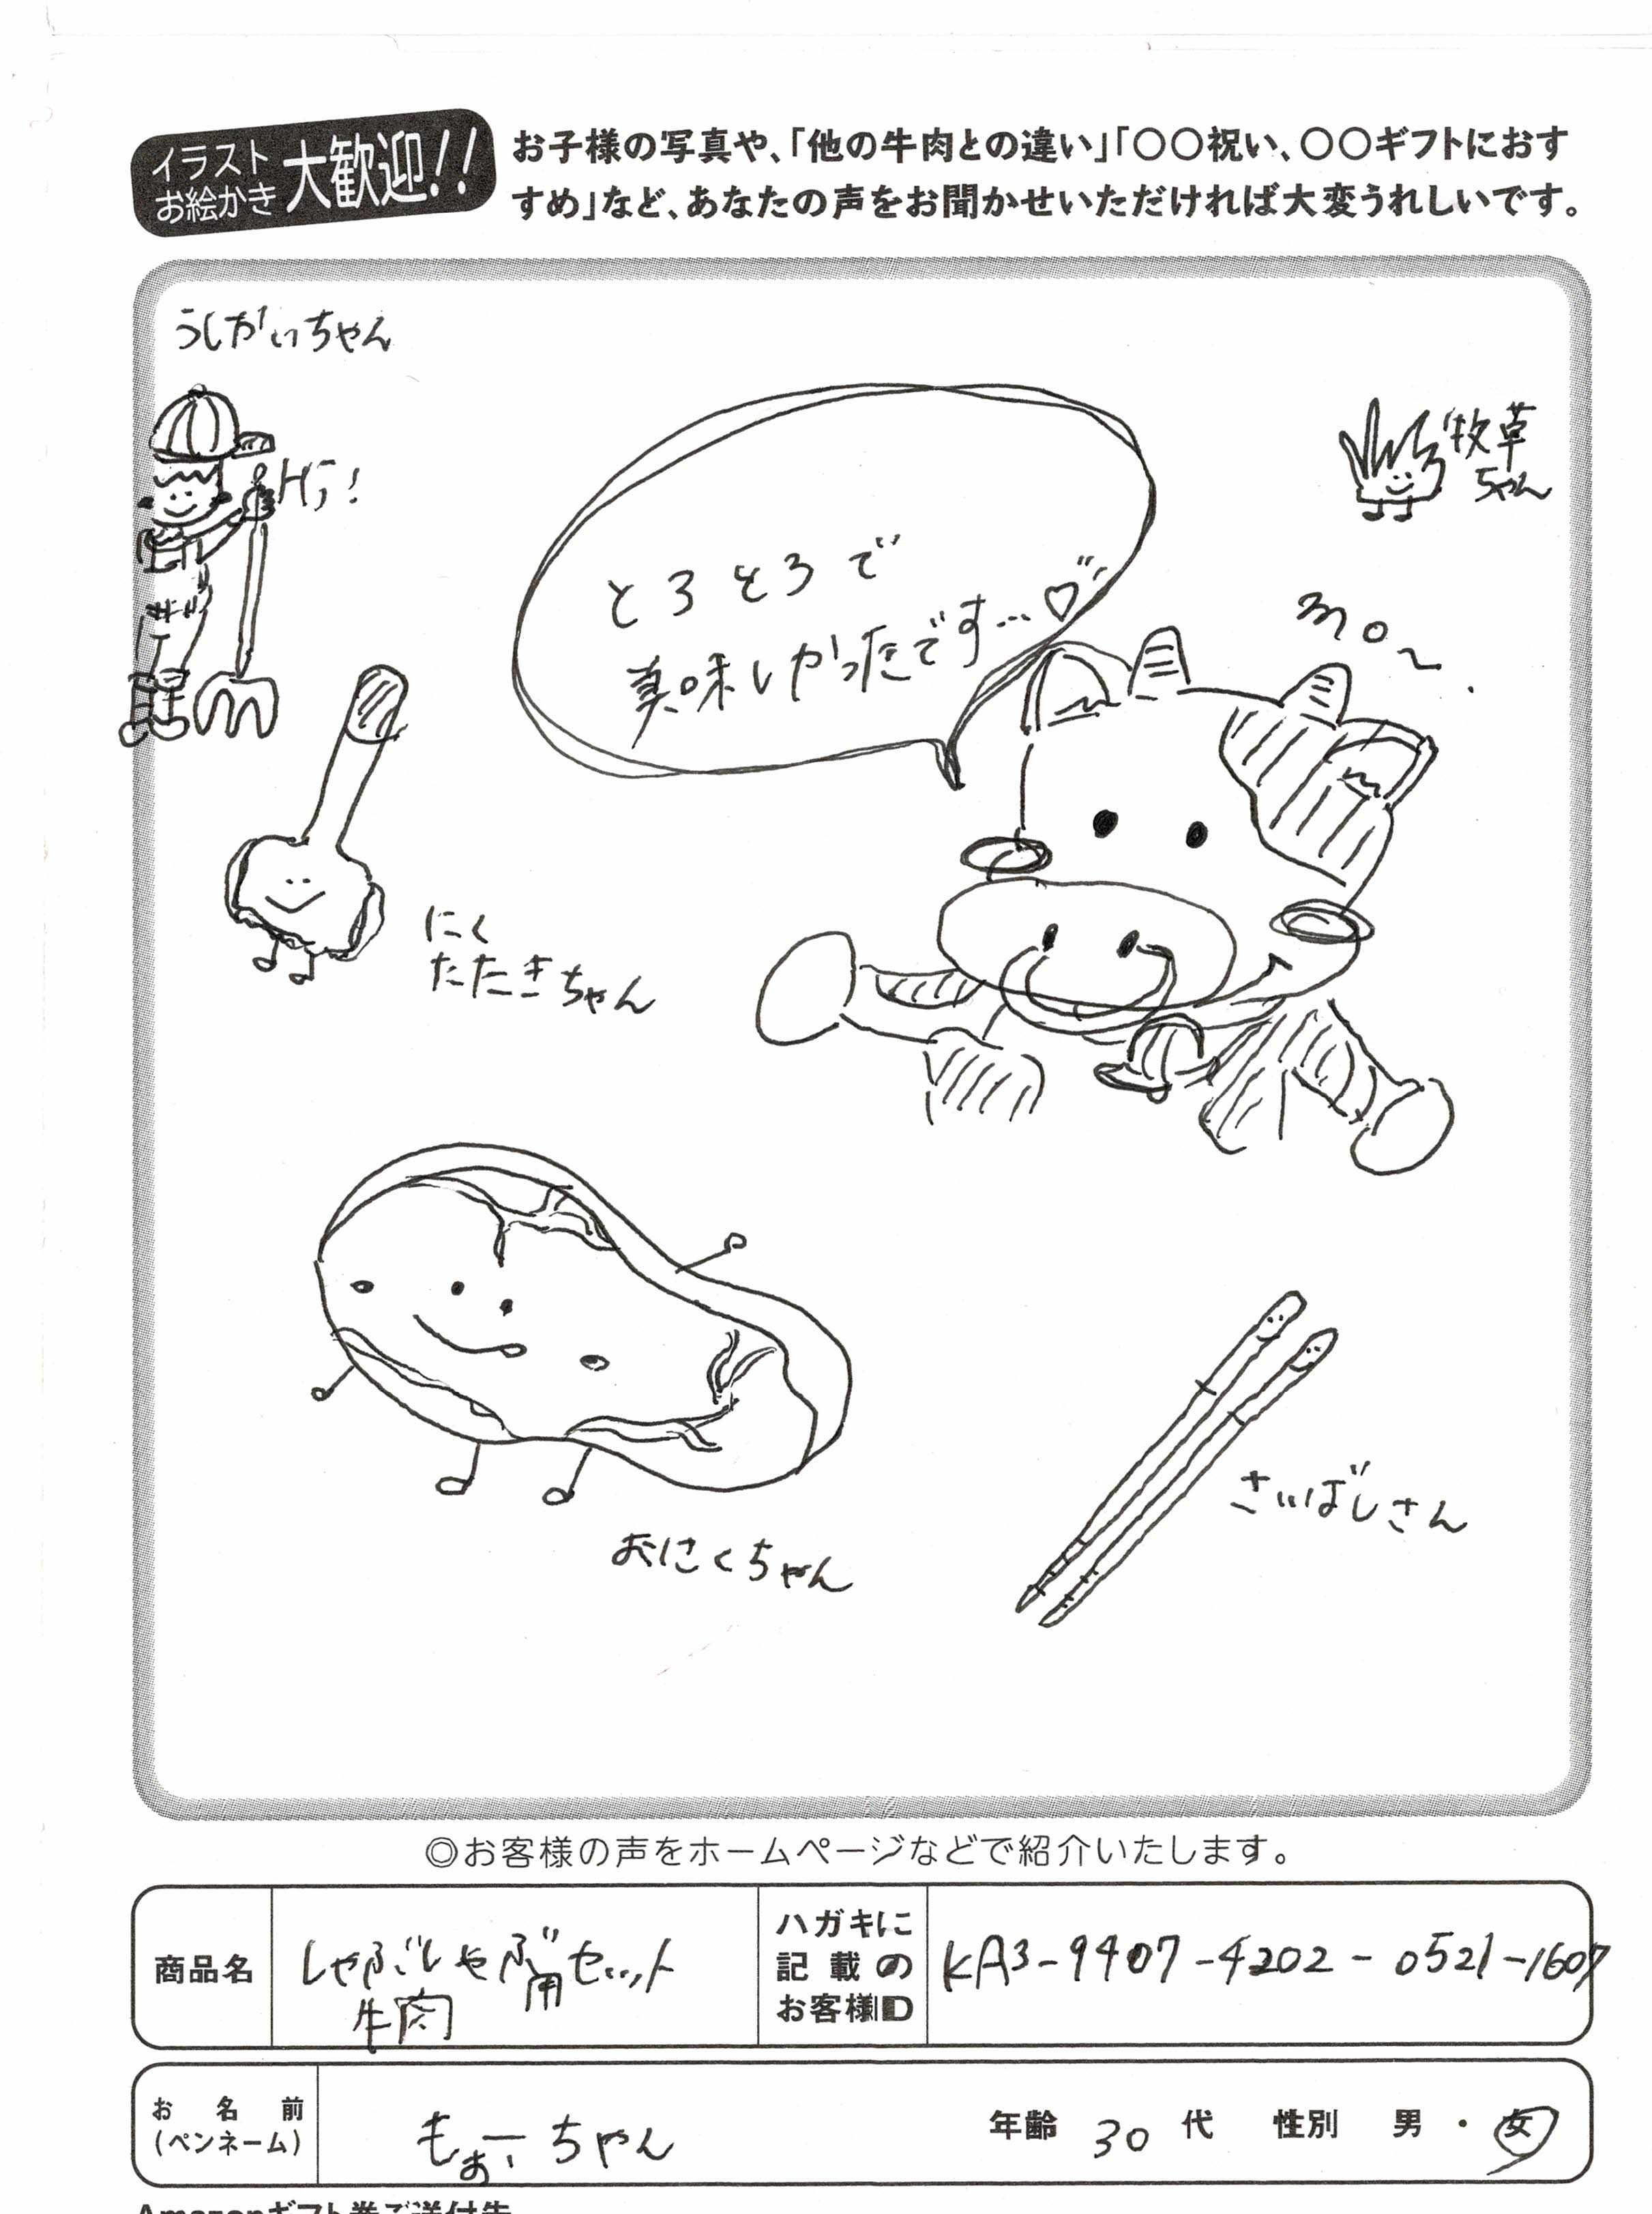 イラスト
お絵かき
大歓迎!!
お子様の写真や、「他の牛肉との違い」「〇〇祝い、〇〇ギフトにおす
すめ」など、あなたの声をお聞かせいただければ大変うれしいです。
うしかいちゃん
Hi!
牧草
ちゃん
とろとろで
美味しかったです…♡
mo~
にく
たたきちゃん
おにくちゃん
さいばしさん
◎お客様の声をホームページなどで紹介いたします。
商品名
しゃぶしゃぶ用セット
牛肉
ハガキに
記載の
お客様ID
KA3-9407-4202-0521-1607
お名前
(ペンネーム)
もぉーちゃん
年齢 30 代 性別 男・女
Amazonギフト券ご送付先